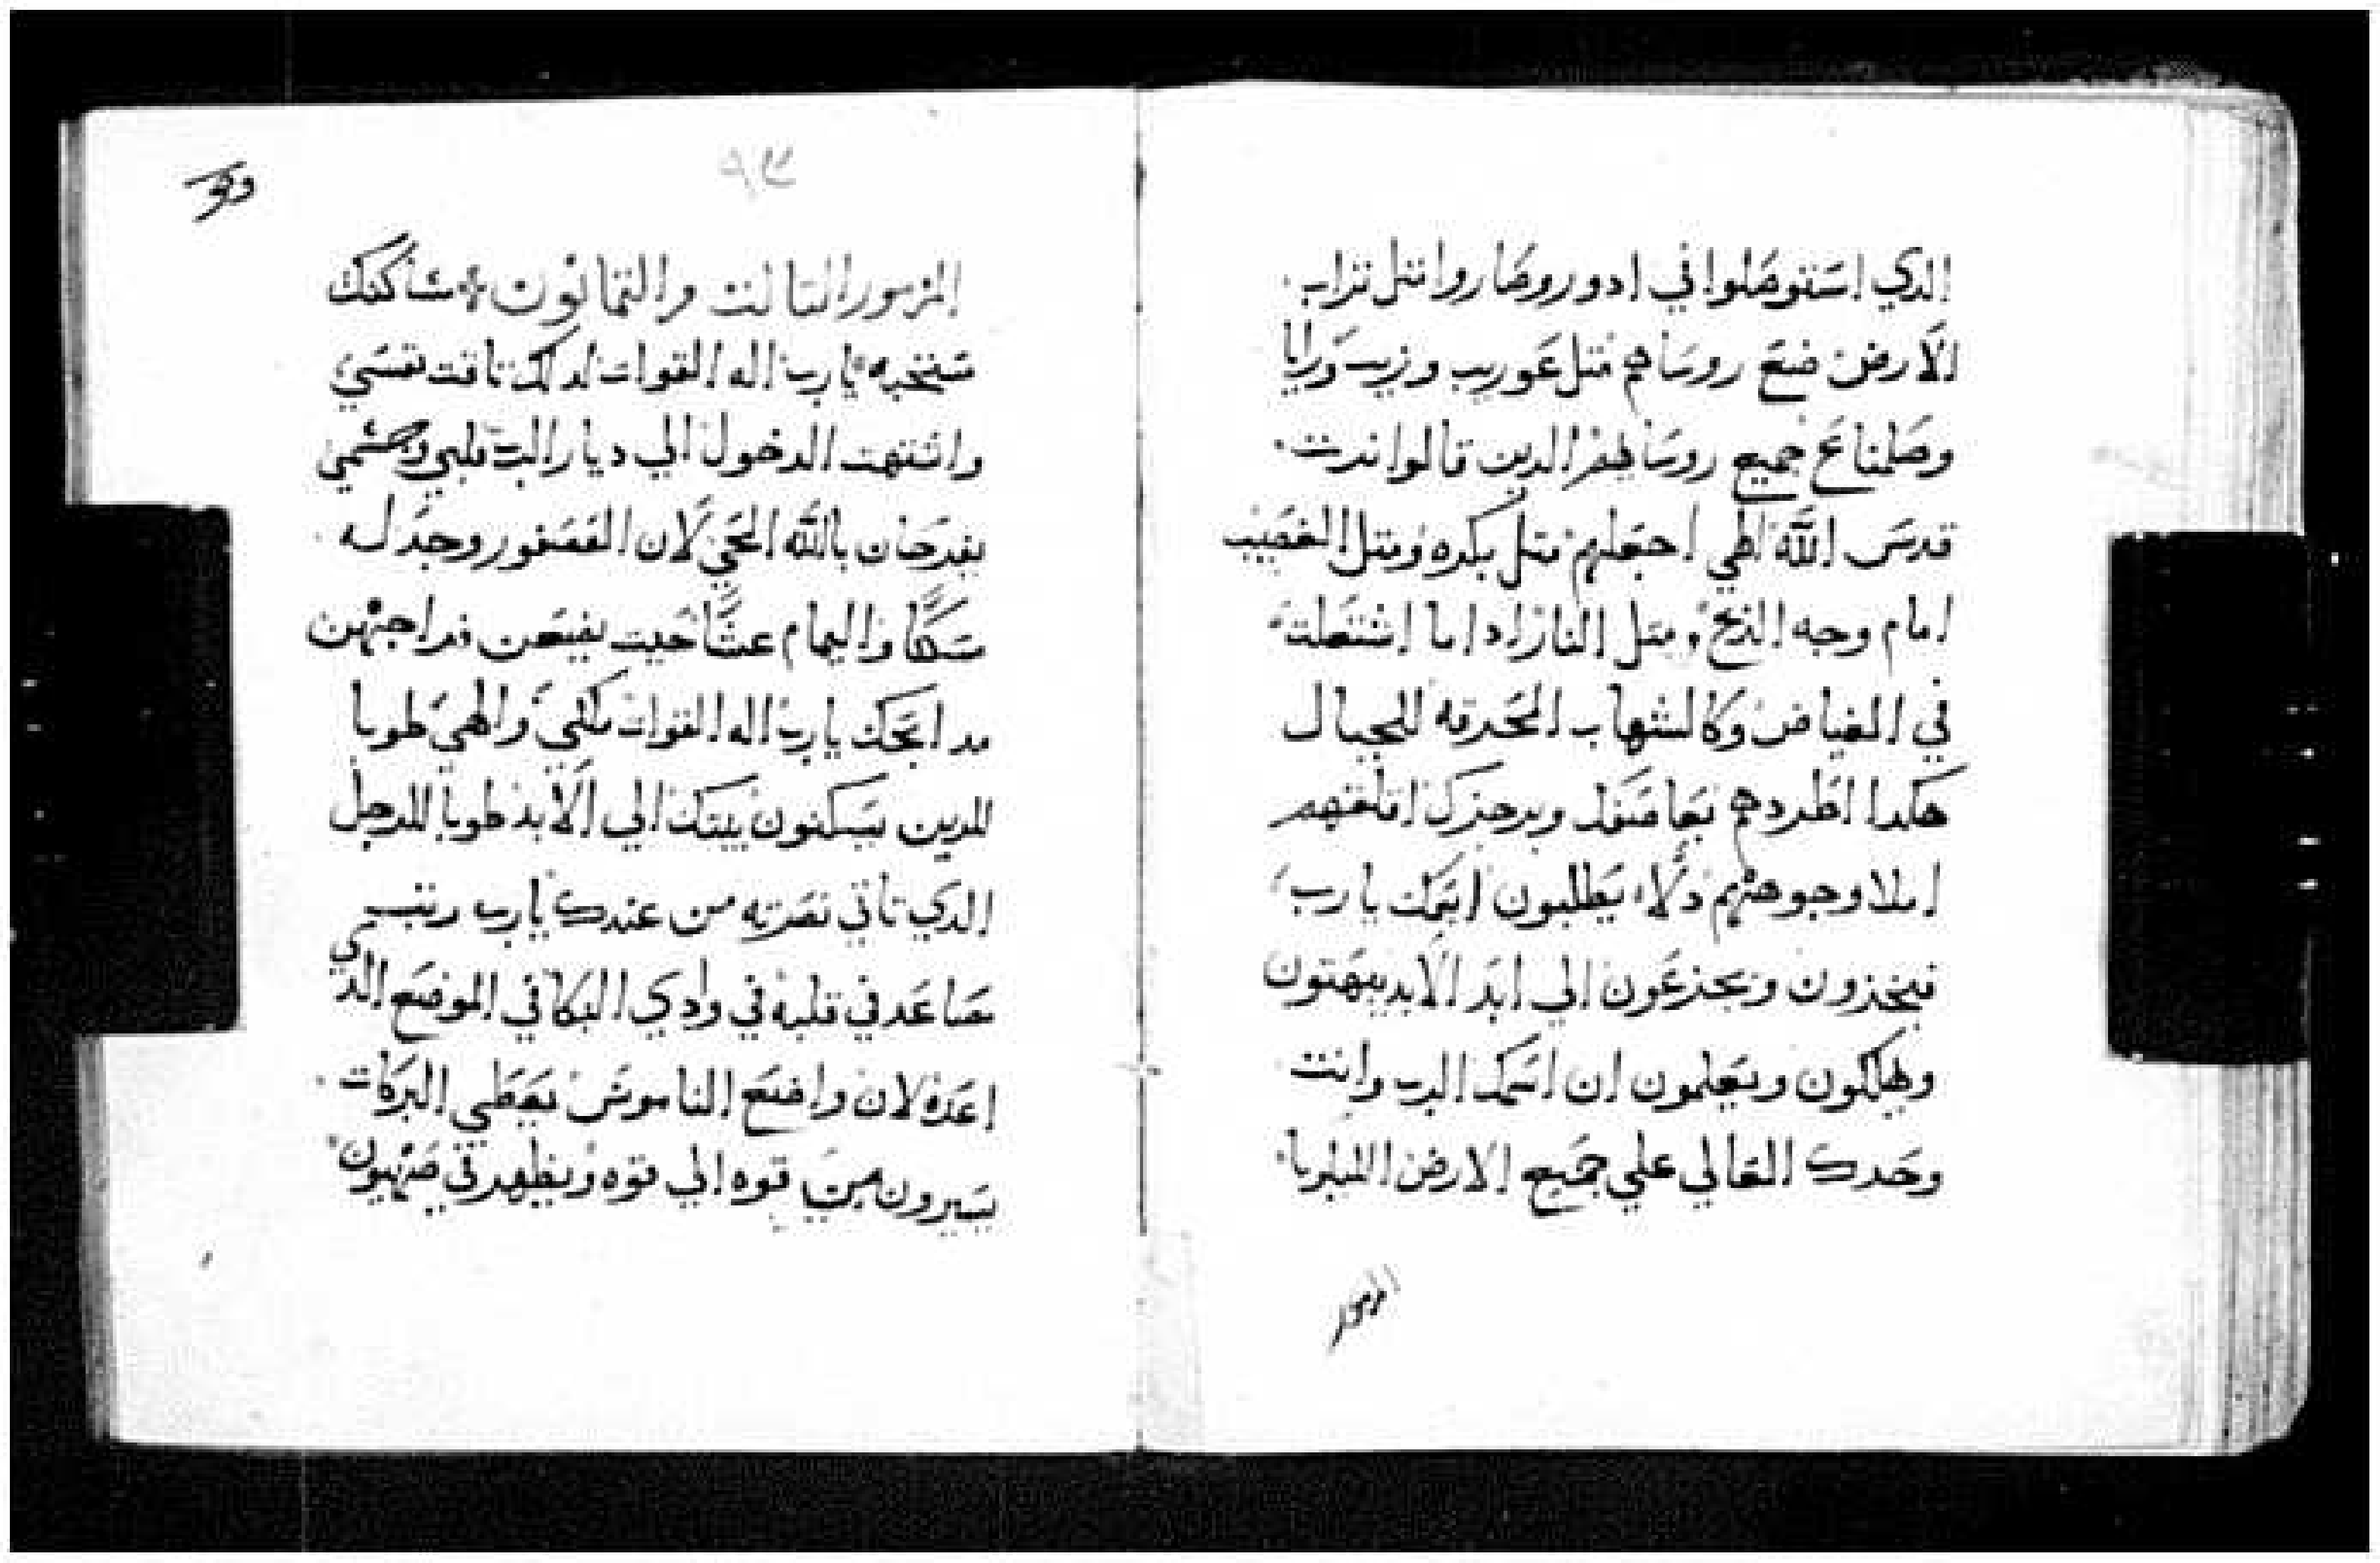 الذي استوصلوا في ادور وصاروا متل تراب
الارض ضع روساهم متل عوريب وزيب ورايا
وصلمناع جميع روساهم الدين قالوا نرت
قدس الله الهي اجعلهم متل بكره ومتل القصيب
امام وجه الريح ومتل النار ادا ما اشتعلت
في الغياض وكالشهاب المحرقه للجبال
هكدا اطردهم بعاصفك وبرجزك اقلقهم
املا وجوههم دلا يطلبون اسمك يا رب
فيخزون ويجزعون الي ابد الابد يبهتون
ويهلكون ويعلمون ان اسمك الرب وانت
وحدك العالي علي جميع الارض الليلويا
المزمور
٩٣
المزمور التالت والتمانون مساكنك
منتخبه يا رب اله القوات لدلك تاقت نفسي
واشتهت الدخول الي ديار الرب قلبي وجسمي
يفرحان بالله الحي لان العصفور وجد له
مسكنا واليمام عشا حيت يضعن فراخهن
مدابحك يا رب اله القوات ملكي والهي طوبا
للدين يسكنون بيتك الي الابد طوبا للرجل
الدي تاتي نصرته من عندك يا رب رتب
مصاعد في قلبه في وادي البكا في الموضع الدي
اعده لان واضع الناموس يعطي البركات
يسيرون من قوه الي قوه ويظهر في صهيون